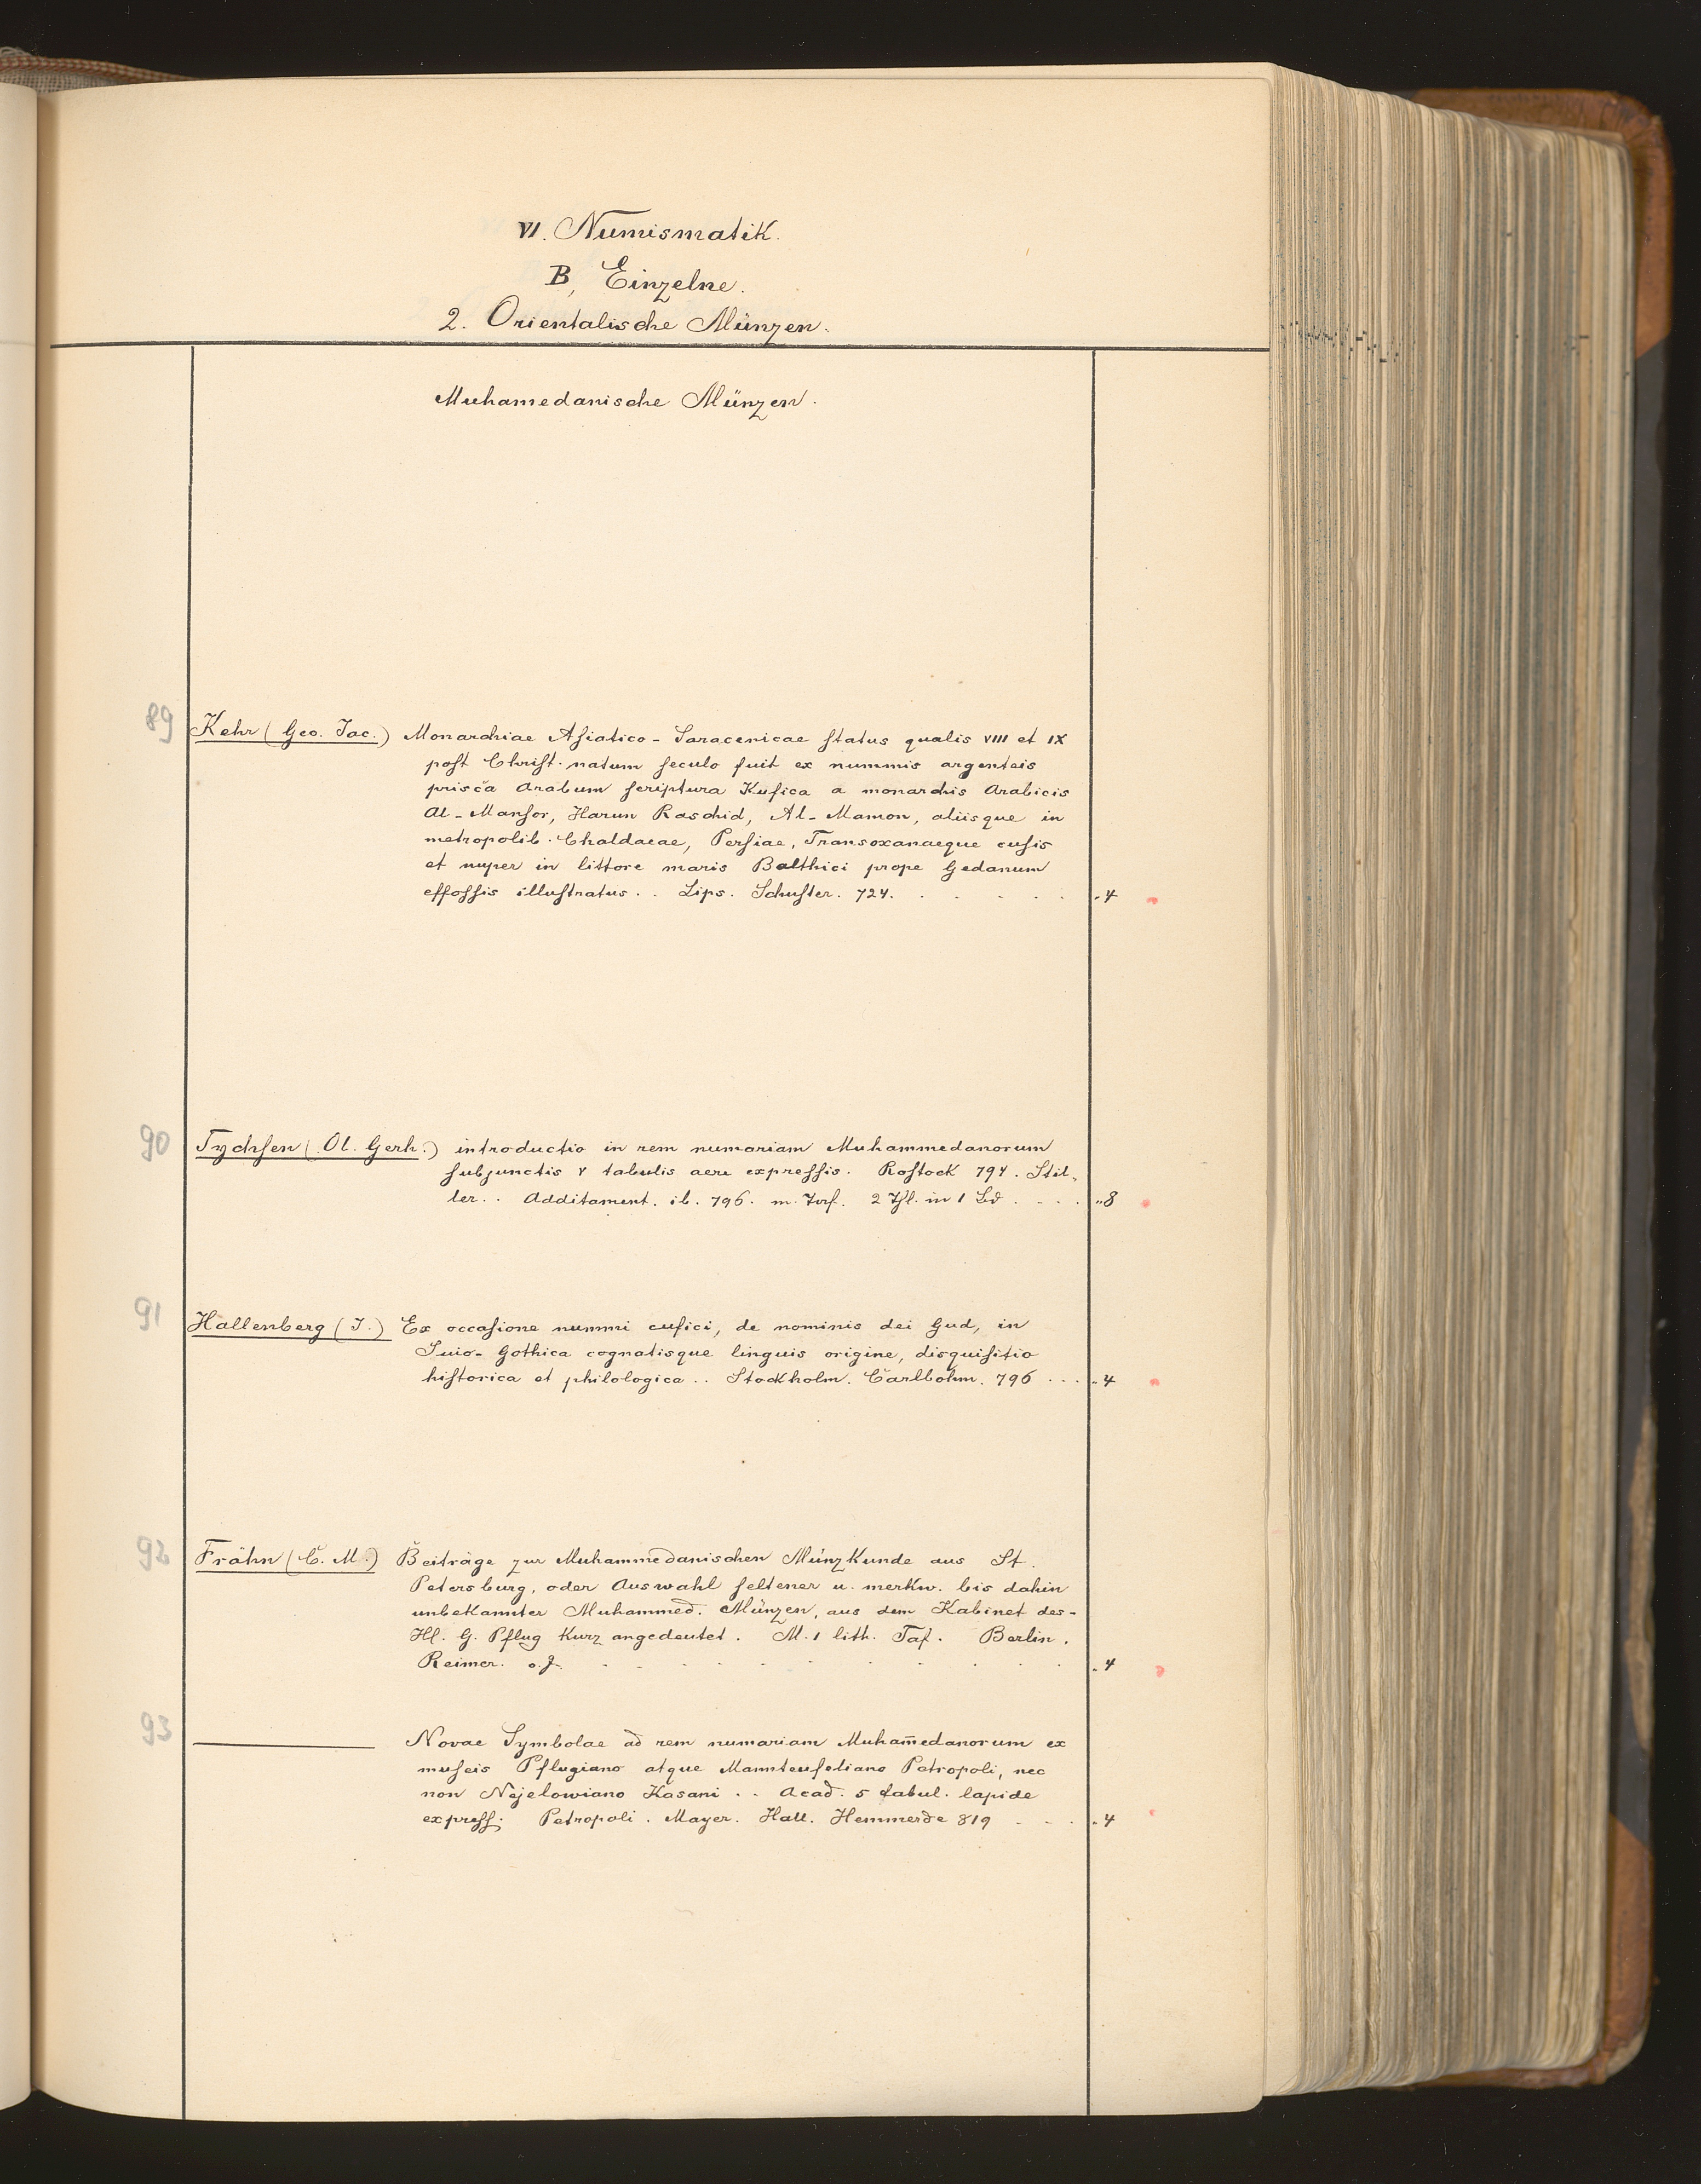 VI. Numismatik.
B, Einzelne.
2. Orientalische Münzen.
Muhamedanische Münzen.
89 Kehr (Geo. Jac.) Monarchiae Asiatico-Saracenicae status qualis VIII et IX
post Christ. natum seculo fuit ex nummis argenteis
prisca Arabum scriptura Kufica a monarchis Arabicis
Al-Mansor, Harun Raschid, Al-Mamon, aliisque in
metropolib. Chaldaeae, Persiae, Transoxanaeque cusis
et nuper in littore maris Balthici prope Gedanum
effossis illustratus . . Lips. Schuster. 724. . . . . . „4
90 Tychsen (Ol. Gerh.) introductio in rem numariam Muhammedanorum
subjunctis V tabulis aere expressis. Rostock 794. Stil-
ler . . Additament. ib. 796. m. 2 Thl. in 1 Bd . . . . „8
91 Hallenberg (J.) Ex occasione nummi cufici, de nominis dei Gud, in
Suio-Gothica cognatisque linguis origine, disquisitio
historica et philologica . . Stockholm. Carlbohm. 796 . . . „4
92 Frähn (C. M.) Beiträge zur Muhammedanischen MünzKunde aus St.
Petersburg, oder Auswahl seltener u. merkw. bis dahin
unbekannter Muhammed. Münzen, aus dem Kabinet des-
H. G. Pflug Kurz angedeutet. M. 1 lith. Taf. Berlin.
Reimer. o. J. . . . . . . . . . . „4
93 ——— Novae Symbolae ad rem numariam Muham̄edanorum ex
museis Pflugiano atque Mannteufeliano Petropoli, nec
non Nejelowiano Kasani . . Acad. 5 tabul. lapide
express. Petropoli. Mayer. Hall. Hemmerde 819 . . . „4